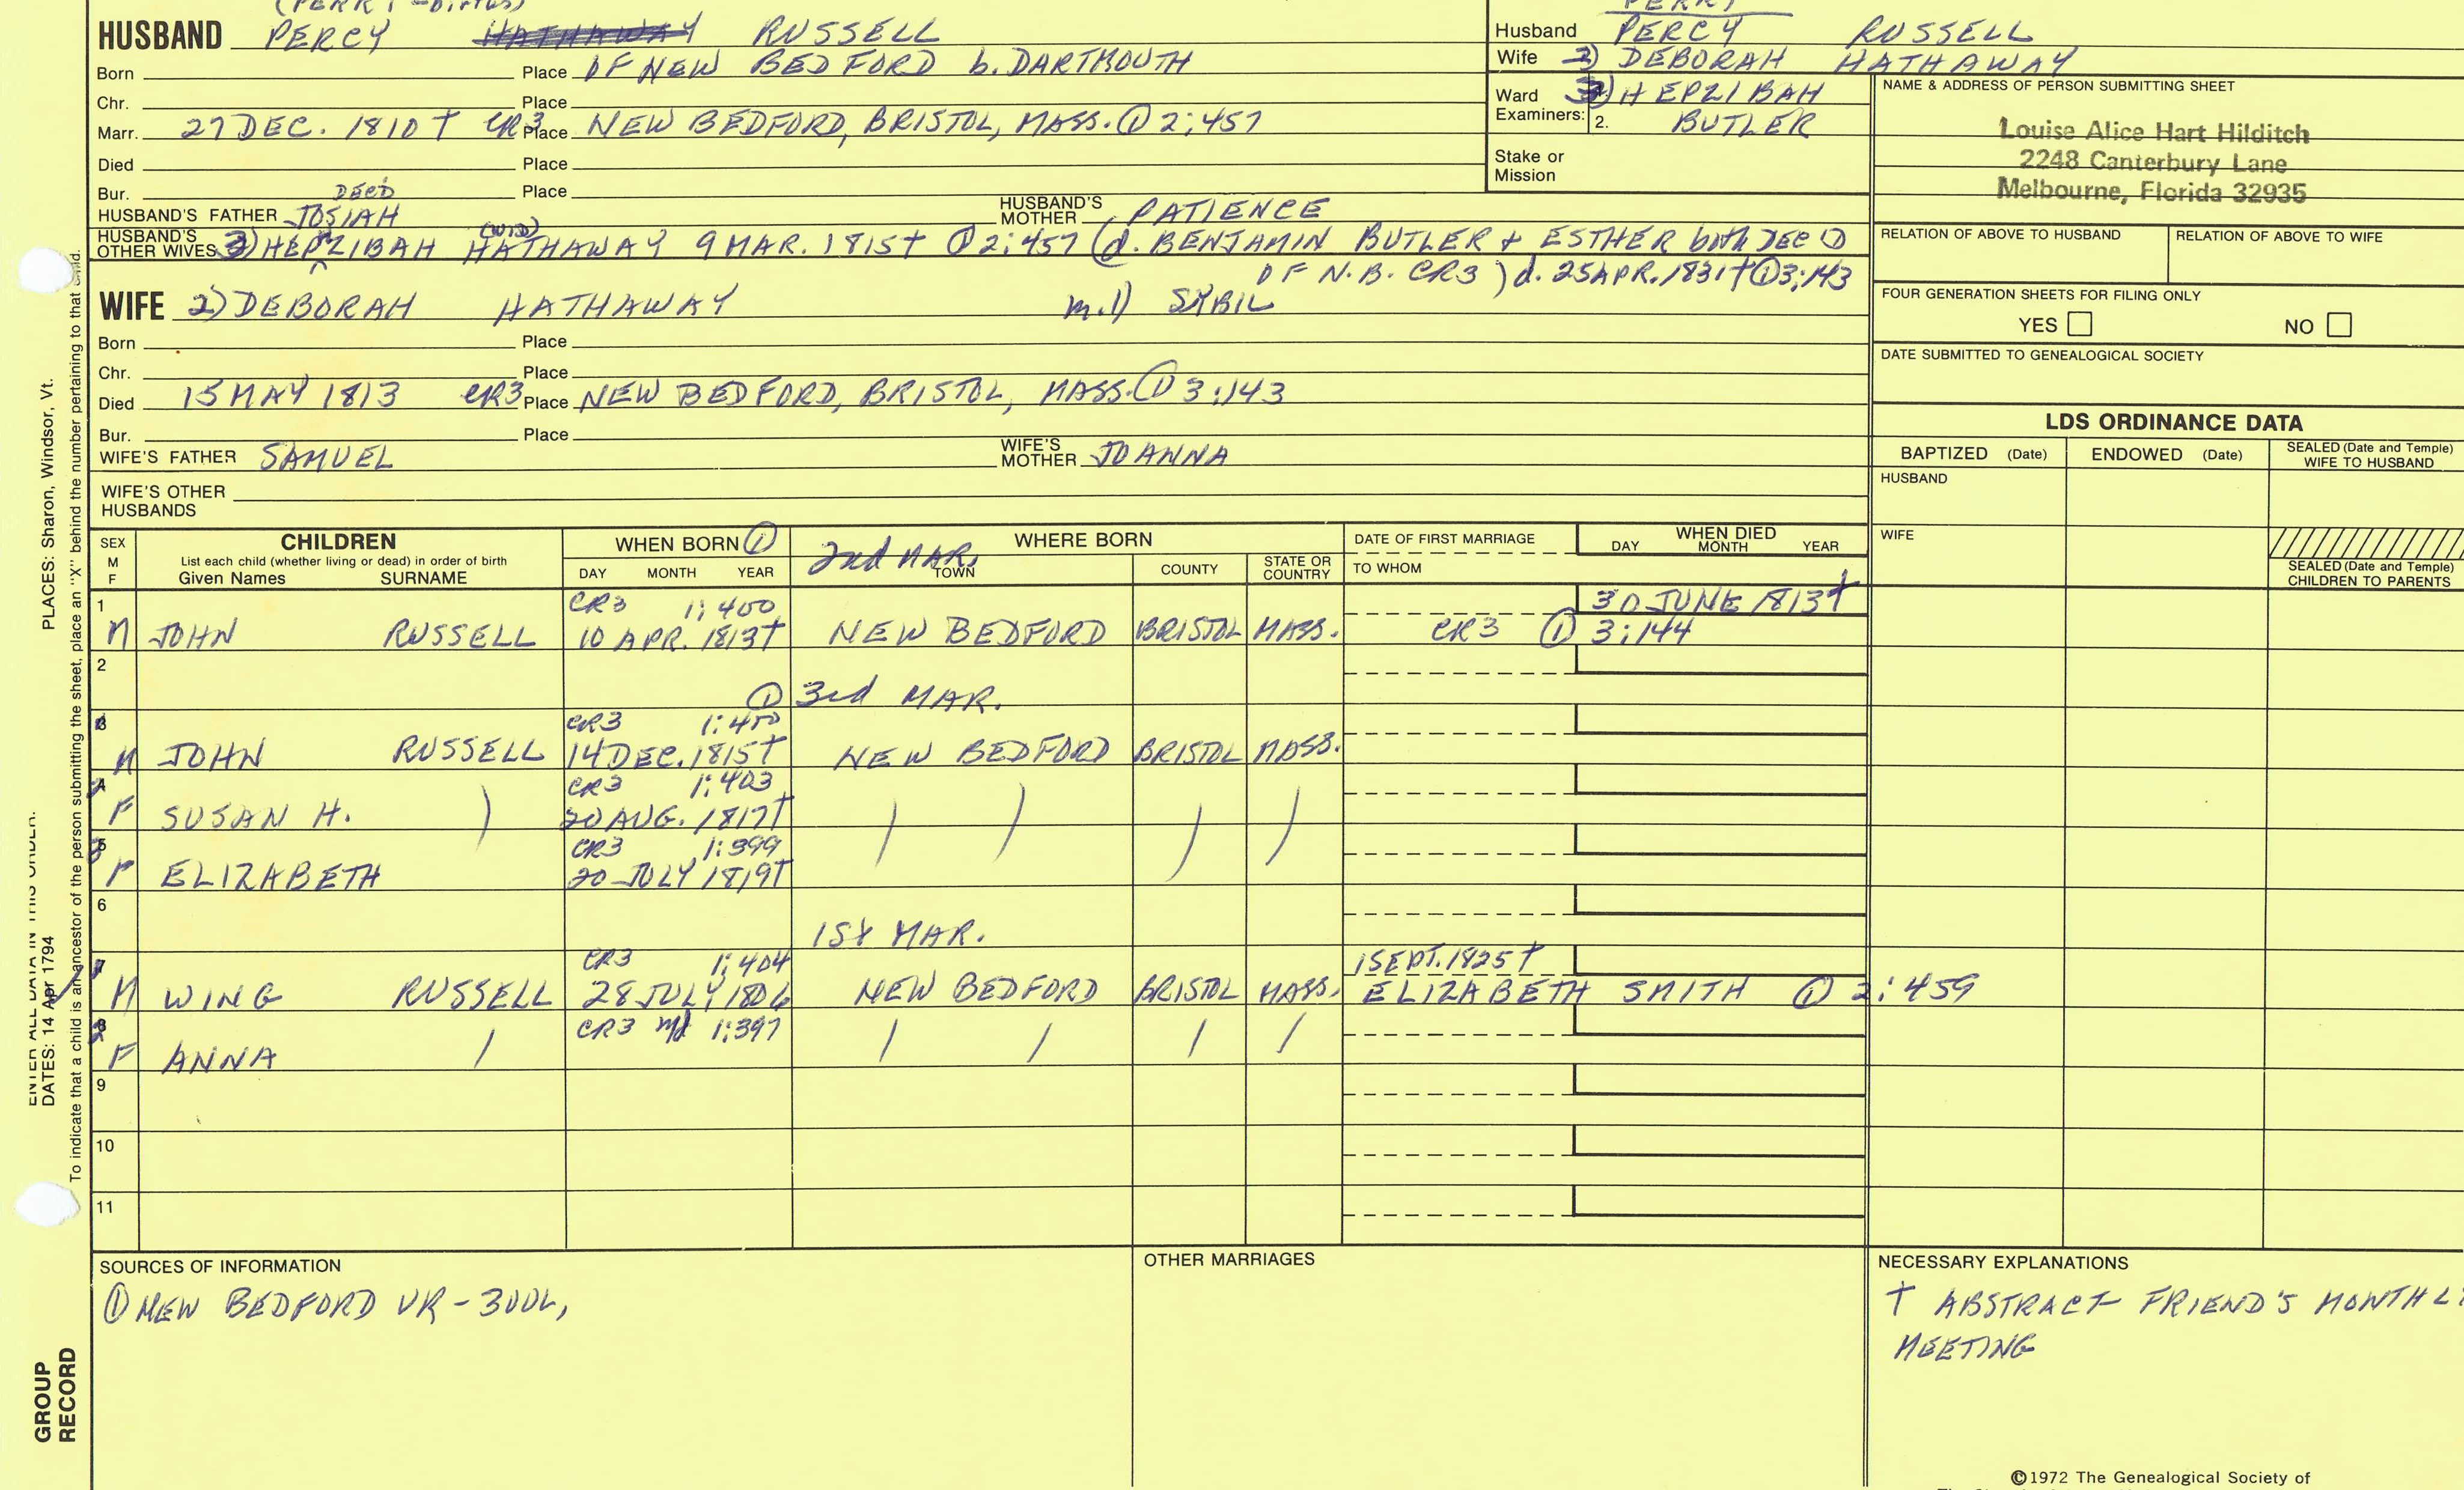 (PERRY - Births)
HUSBAND PERCY HATHAWAY RUSSELL
Born Place OF NEW BEDFORD b. DARTMOUTH
Chr. Place
Marr. 27 DEC. 1810 † CR3 Place NEW BEDFORD, BRISTOL, MASS. ① 2:457
Died Place
Bur. Place
DEC'D
HUSBAND'S FATHER JOSIAH HUSBAND'S MOTHER PATIENCE
HUSBAND'S OTHER WIVES 3) HEPZIBAH (WID) HATHAWAY 9 MAR. 1815† ① 2:457 (d. BENJAMIN BUTLER + ESTHER both DEC'D
OF N.B. CR3) d. 25 APR. 1831† ① 3:143
WIFE 2) DEBORAH HATHAWAY m. 1) SYBIL
Born Place
Chr. Place
Died 15 MAY 1813 CR3 Place NEW BEDFORD, BRISTOL, MASS. ① 3:143
Bur. Place
WIFE'S FATHER SAMUEL WIFE'S MOTHER JOANNA
WIFE'S OTHER HUSBANDS
PERRY
Husband PERCY RUSSELL
Wife 2) DEBORAH HATHAWAY
Ward 3) HEPZIBAH
Examiners: 2. BUTLER
Stake or Mission
NAME & ADDRESS OF PERSON SUBMITTING SHEET
Louise Alice Hart Hilditch
2248 Canterbury Lane
Melbourne, Florida 32935
RELATION OF ABOVE TO HUSBAND RELATION OF ABOVE TO WIFE
FOUR GENERATION SHEETS FOR FILING ONLY
YES NO
DATE SUBMITTED TO GENEALOGICAL SOCIETY
LDS ORDINANCE DATA
BAPTIZED (Date) ENDOWED (Date) SEALED (Date and Temple) WIFE TO HUSBAND
HUSBAND
WIFE
SEALED (Date and Temple) CHILDREN TO PARENTS
SEX M F
CHILDREN
List each child (whether living or dead) in order of birth
Given Names SURNAME
WHEN BORN ①
DAY MONTH YEAR
2nd MAR. WHERE BORN
TOWN COUNTY STATE OR COUNTRY
DATE OF FIRST MARRIAGE
TO WHOM
WHEN DIED
DAY MONTH YEAR
1 CR3 1:400 30 JUNE 1813†
M JOHN RUSSELL 10 APR. 1813† NEW BEDFORD BRISTOL MASS. CR3 ① 3:144
2
① 3rd MAR.
3 CR3 1:400
M JOHN RUSSELL 14 DEC. 1815† NEW BEDFORD BRISTOL MASS.
4 CR3 1:403
F SUSAN H. ) 20 AUG. 1817† ) ) ) )
5 CR3 1:399
F ELIZABETH 20 JULY 1819†
6
1st MAR.
7 CR3 1:404 1 SEPT. 1825†
M WING RUSSELL 28 JULY 1806 NEW BEDFORD BRISTOL MASS. ELIZABETH SMITH ① 2:459
8 CR3 1:397
F ANNA / / / / /
9
10
11
SOURCES OF INFORMATION
① NEW BEDFORD VR - 3VOL,
OTHER MARRIAGES
NECESSARY EXPLANATIONS
† ABSTRACT FRIEND'S MONTHLY
MEETING
©1972 The Genealogical Society of
PLACES: Sharon, Windsor, Vt.
ENTER ALL DATA IN THIS ORDER:
DATES: 14 Apr 1794
To indicate that a child is an ancestor of the person submitting the sheet, place an "X" behind the number pertaining to that child.
GROUP
RECORD